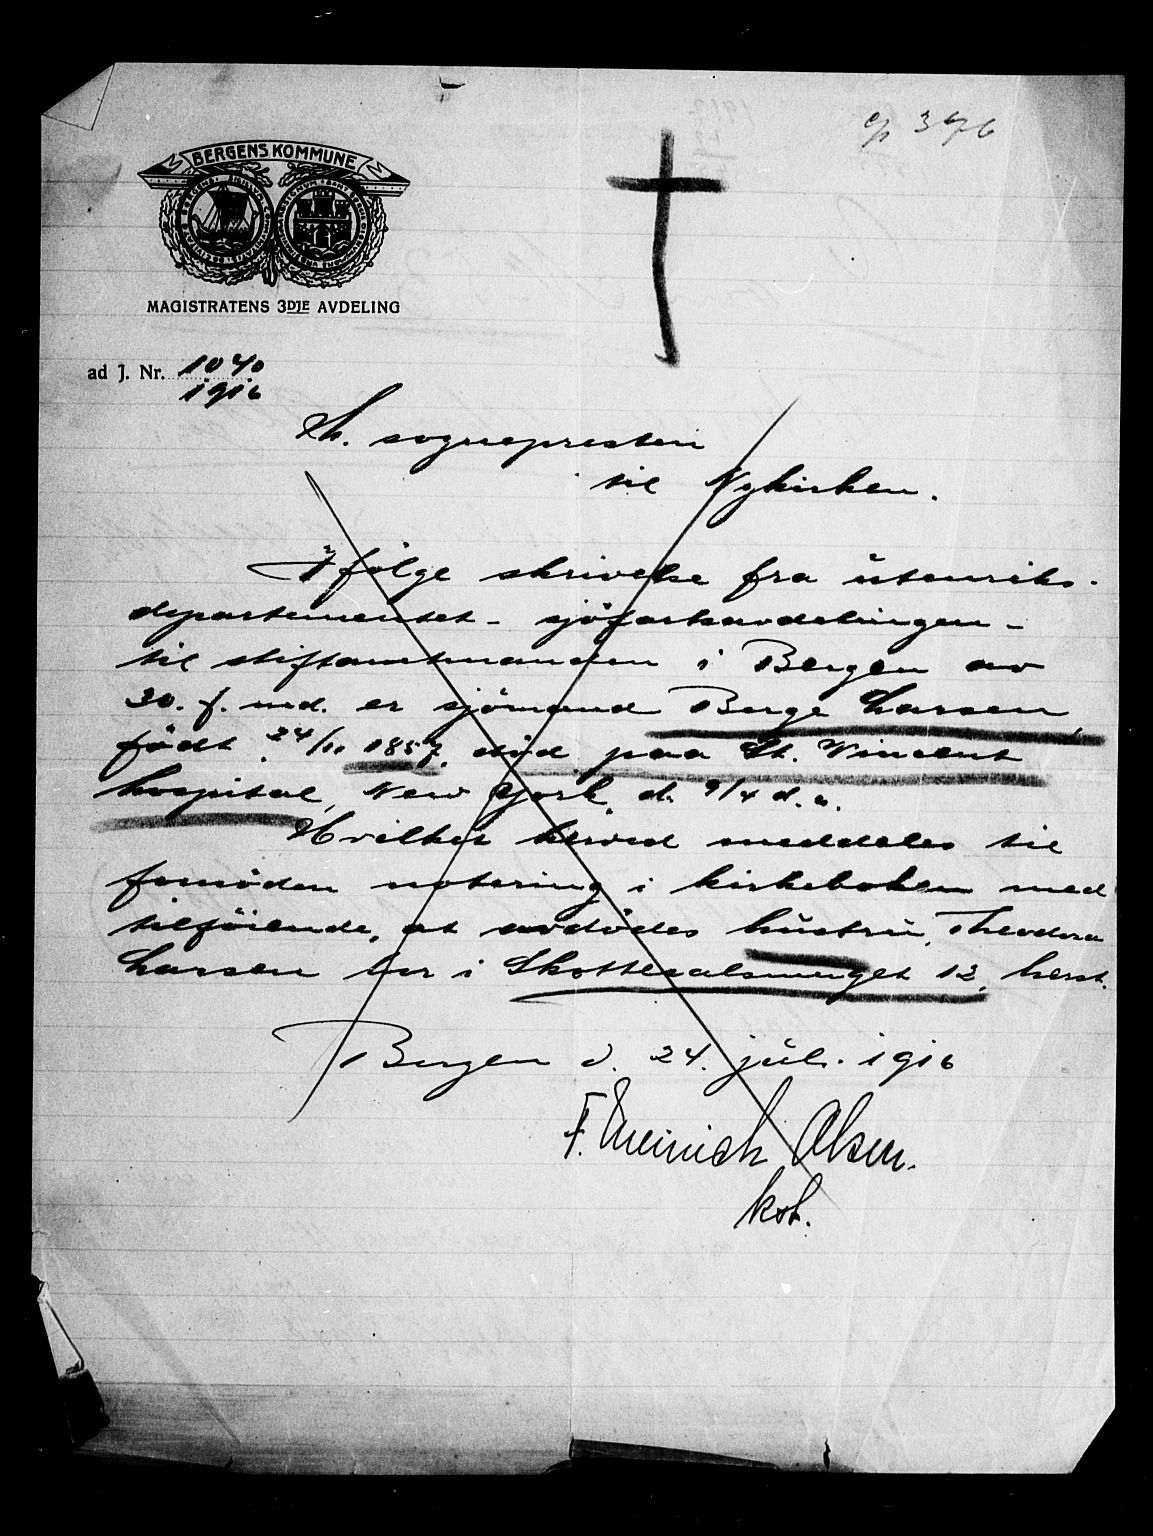 376
BERGENS KOMMUNE
MAGISTRATENS 3DJE AVDELING
ad J. Nr. 1040
1916
Hr. sognepresten
til Nykirken.
Ifølge skrivelse fra utenriks-
departementet - sjöfartsavdelingen -
til stiftamtmanden i Bergen av
30. f. md. er sjömand Berge Larsen,
født 24/11 1857, död paa St. Vincent
hospital, New York d. 9/4 d. a.
Hvilket herved meddeles til
fornøden notering i kirkeboken med
tilføiende, at avdödes hustru, Theodora
Larsen bor i Skottesalsmuget 12, herst.
Bergen d. 24. juli 1916
F. Meinich Olsen.
kst.